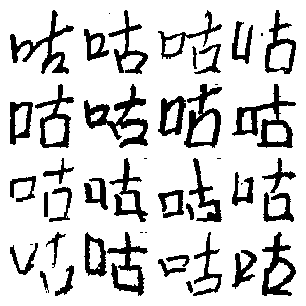 咕咕咕咕
咕咕咕咕
咕咕咕咕
咕咕咕咕